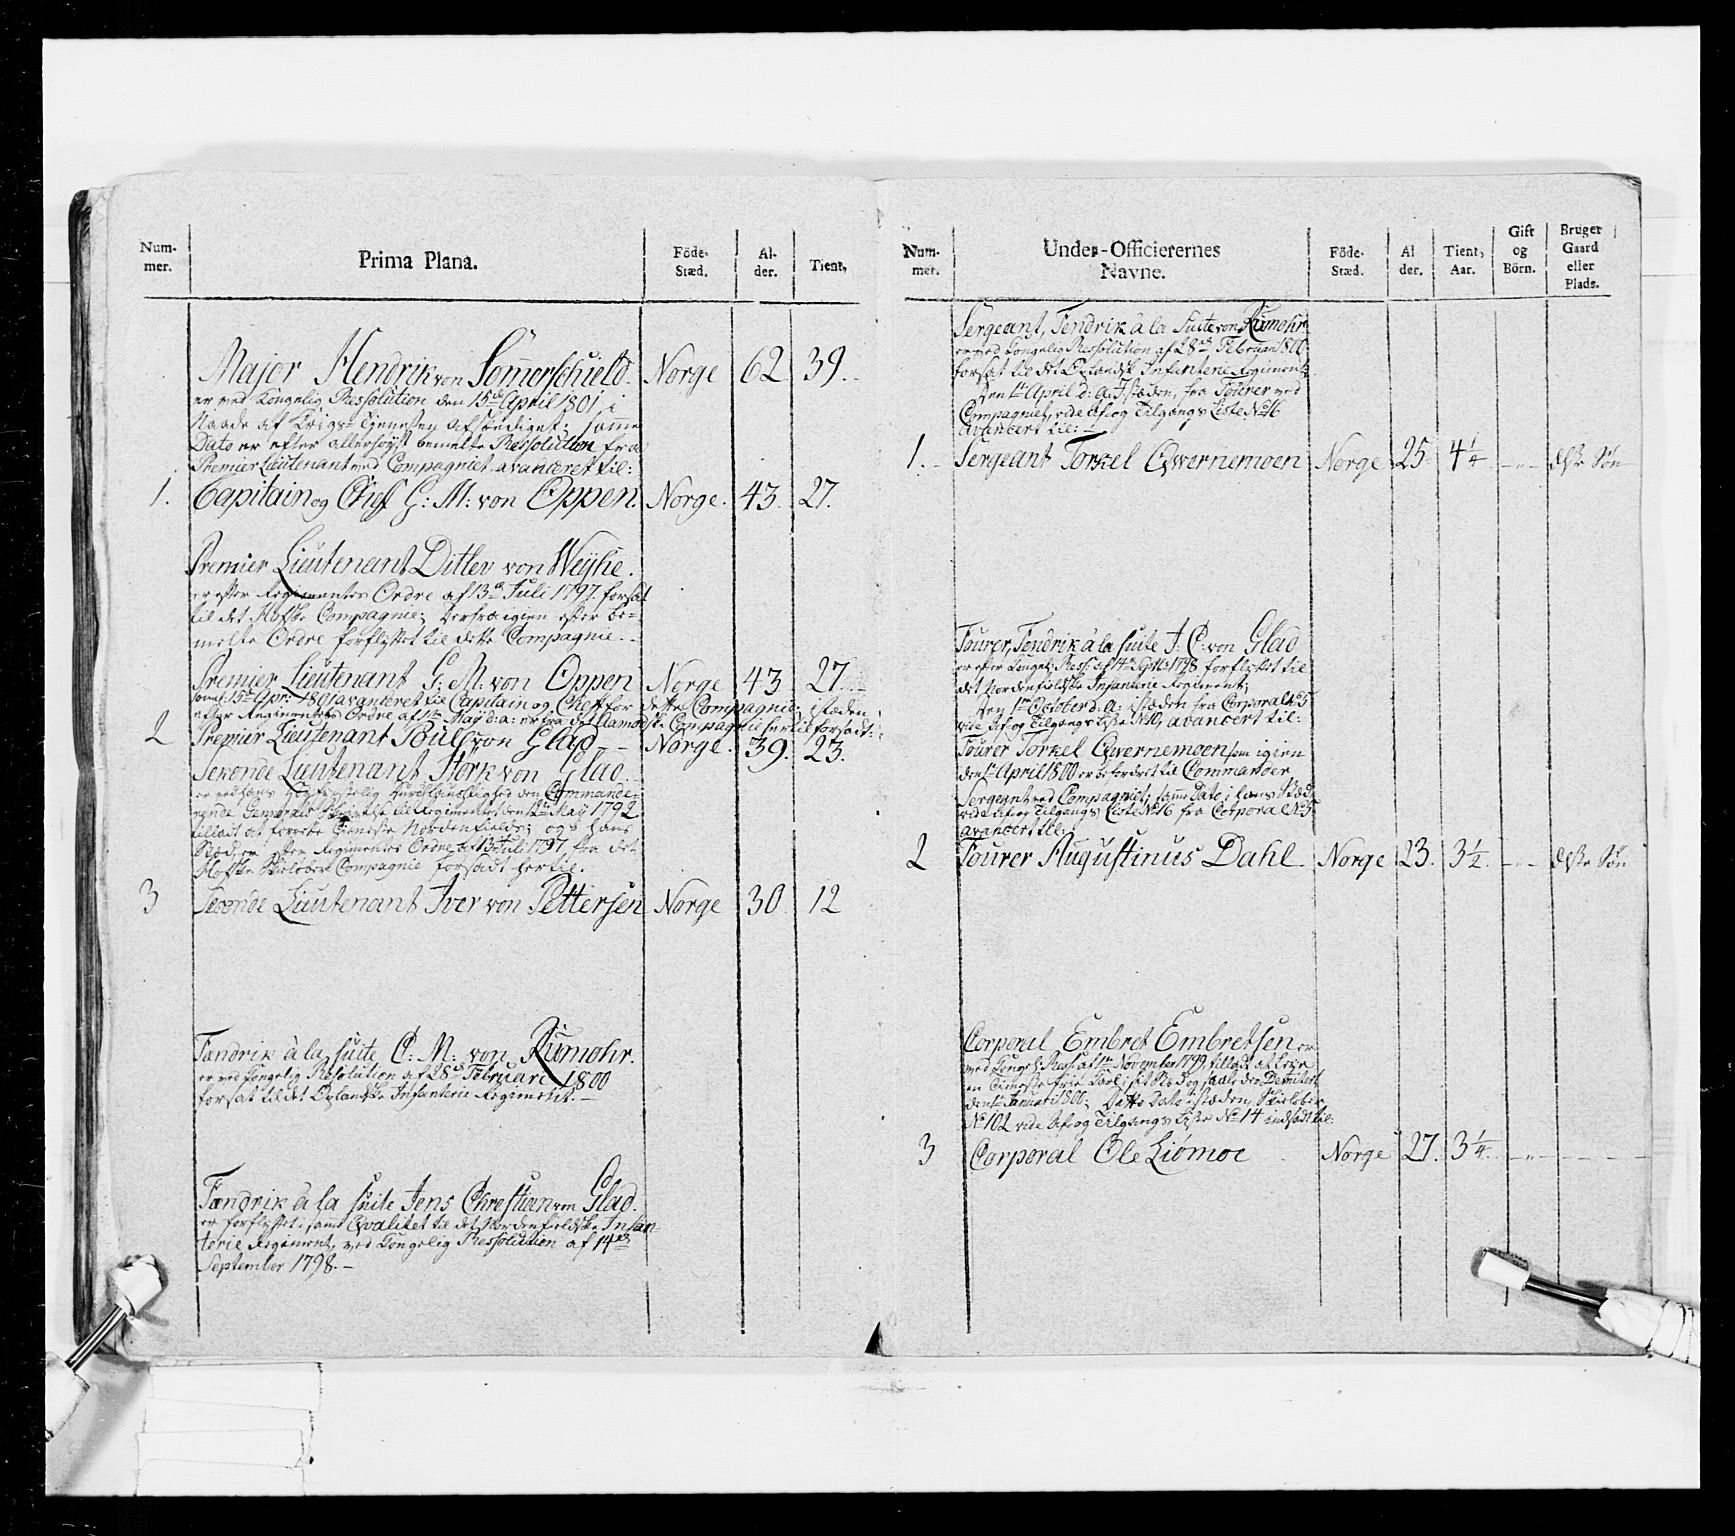 Num-
mer.
Prima Plana.
Föde-
Stæd.
Al-
der.
Tient,
Major Hendrik von Sömerschield. Norge 62 39.
er ved Kongelig Ressolution den 15de April 1801 i
Naade af Krigs Tienesten afskediget; samme
Dato er efter allerhöyst bemelte Ressolution fra
Premier Lieutenant ved Compagniet avanceret til:
1. Capitain og Chef G: M: von Oppen. Norge. 43. 27.
Premier Lieutenant Ditlev von Weyhe.
er efter Regimentes Ordre af 13de Juli 1797. forsat
til det Compagnie; derfra igien efter be-
melte Ordre forflyttet til dette Compagnie.
Premier Lieutenant G: M: von Oppen Norge 43 27.
15de Apr: 1801 avanceret til Capitain og Chef for dette Compagnie; i stæden
efter Regimentets Ordre af 1te May d: a: er fra det Compagnie hertil forsadt:
2 Premier Lieutenant Poul von Glad Norge. 39. 23.
Sekonde Lieutenant Störk von Glad
er ved hans den Commande-
rende Generals til Regimentet, den May 1792
tilladt at forrette Tieneste Nordenfields; og i hans
Stæd, er efter Regimentes Ordre af 13de Juli 1797 fra det
Skielöber Compagnie forsadt hertil.
3 Seconde Lieutenant Iver von Pettersen Norge 30. 12
Fændrik à la suite C: M: von Rumohr.
er ved Kongelig Resolution af 28de Februari 1800
forsat til det Oplandske Infanterie Regiment.
Fændrik à la suite Jens Christian von Glad.
er forflyttet i samme Qvalitet til det Nordenfieldske Infan-
terie Regiment, ved Kongelig Ressolution af 14de
September 1798.
Num-
mer.
Under-Officierernes
Navne.
Föde-
Stæd.
Al
der.
Tient,
Aar.
Gift
og
Börn.
Bruger
Gaard
eller
Plads.
Sergeant, Fendrik à la Suite von Rumohr
er ved Kongelig Ressolution af 28de Februari 1800
forsat til det Oplandsk Infanterie Regiment
den 1te April d: a: I stæden, fra Fourer ved
Compagniet, vide Af og Tilgangs Liste No 16
avancert til:
1. Sergeant Torkel Qwernemoen Norge 25. 4 1/4 - " - dste Sön
Fourer, Fendrik à la suite J: C: von Glad
er efter Kongel: Ress: af 14de Septb: 1798 forflyttet til
det Nordenfieldske Infanterie Regiment,
den 1te October d: a: i stæden fra Corporal No 5
vide Af og Tilgangs Liste No 10, avancert til:
Fourer Torkel Qwernemoen som igien
den 1te April 1800 er befordret til Commandeer
Sergeant ved Compagniet; samme Dato i hans Stæd
vide Af og Tilgangs Liste No 16 fra Corporal No 5
avancert til:
2 Fourer Augustinus Dahl Norge 23. 3 1/2. - " - dste Sön
Corporal Embret Embretsen er
ved Kongel: Ress: af 1te November 1799, tilladt at Leye
en Tieneste frie Karl i sit Stæd og saaledes Demitert
den 1te Januari 1800; Dato i stæden Skielöber
No 102 vide Af og Tilgangs Liste No 14 indsadt til:
3 Corporal Ole Liömoe Norge 27. 3 1/4. - " -